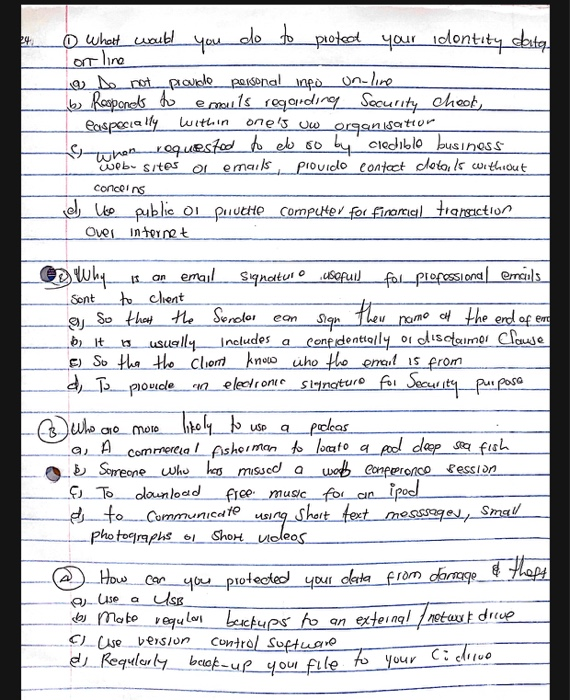 24. ① What would you do to protect your identity data
on-line
a) Do not provide personal info on-line
b) Responds to emails regarding Security check,
easpecially within one's uw organisation
c) when requested to do so by credible business
web-sites or emails, provide contact details without
concerns
d) Use public or private computer for financial transaction
over internet
② Why is an email signature usefull for professional emails
sent to client
a) So that the Sender can sign their name at the end of em
b) It is usually includes a confidentially or disclaimer Clause
c) So tha the Client know who the email is from
d) To provide an electronic signature for Security purpose
③ Who are more likely to use a podcas
a) A commercial fisherman to locate a pod deep sea fish
b) Someone who has missed a web conference session
c) To download free music for an ipod
d) to Communicate using Short text messsages, small
photographs or Short videos
④ How can you protected your data from damage & theft
a) Use a USB
b) Make regular backups to an external / network drive
c) Use version control software
d) Regularly back-up your file to your C: drive